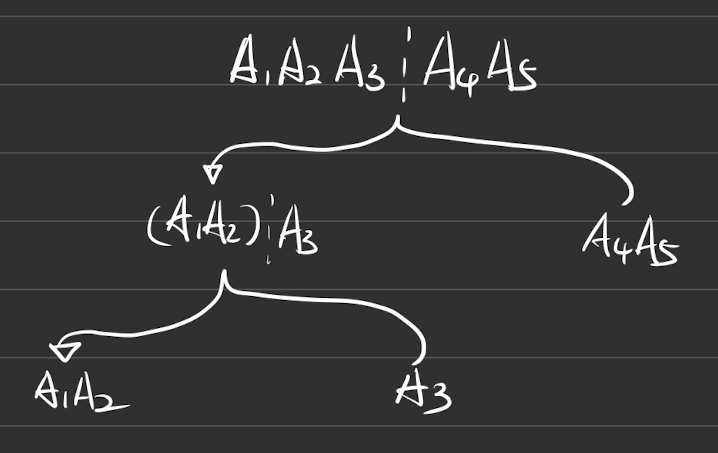 A₁A₂A₃ ¦ A₄A₅
(A₁A₂) ¦ A₃
A₄A₅
A₁A₂
A₃